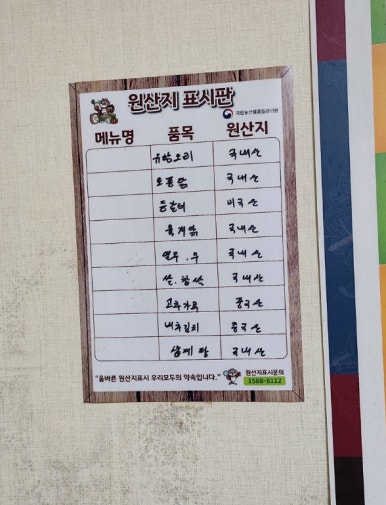 원산지 표시판
국립농산물품질관리원
메뉴명 품목 원산지
유황오리 국내산
토종닭 국내산
등갈비 미국산
국내산
열무, 무 국내산
쌀, 찹쌀 국내산
고추가루 중국산
배추김치 중국산
삼계탕 국내산
"올바른 원산지표시 우리모두의 약속입니다."
원산지표시문의
1588-8112